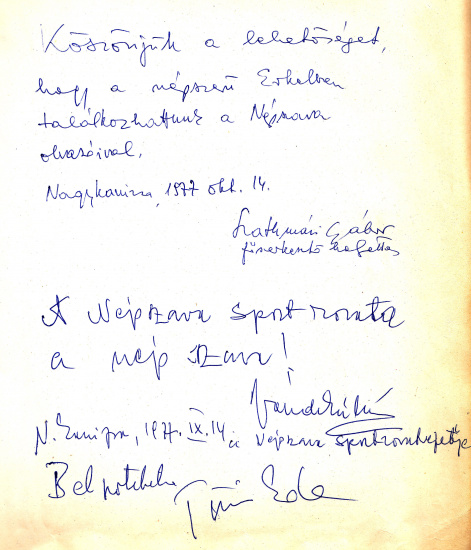 Köszönjük a lehetőséget,
hogy a népszerű Erkelben
találkozhattunk a Népszava
olvasóival.
Nagykanizsa, 1977 okt. 14.
Szathmári Gábor
főszerkesztő helyettes
A Népszava sport rovata
a nép szava!
N. Kanizsa, 1977. IX. 14 a Népszava sportrovatvezetője